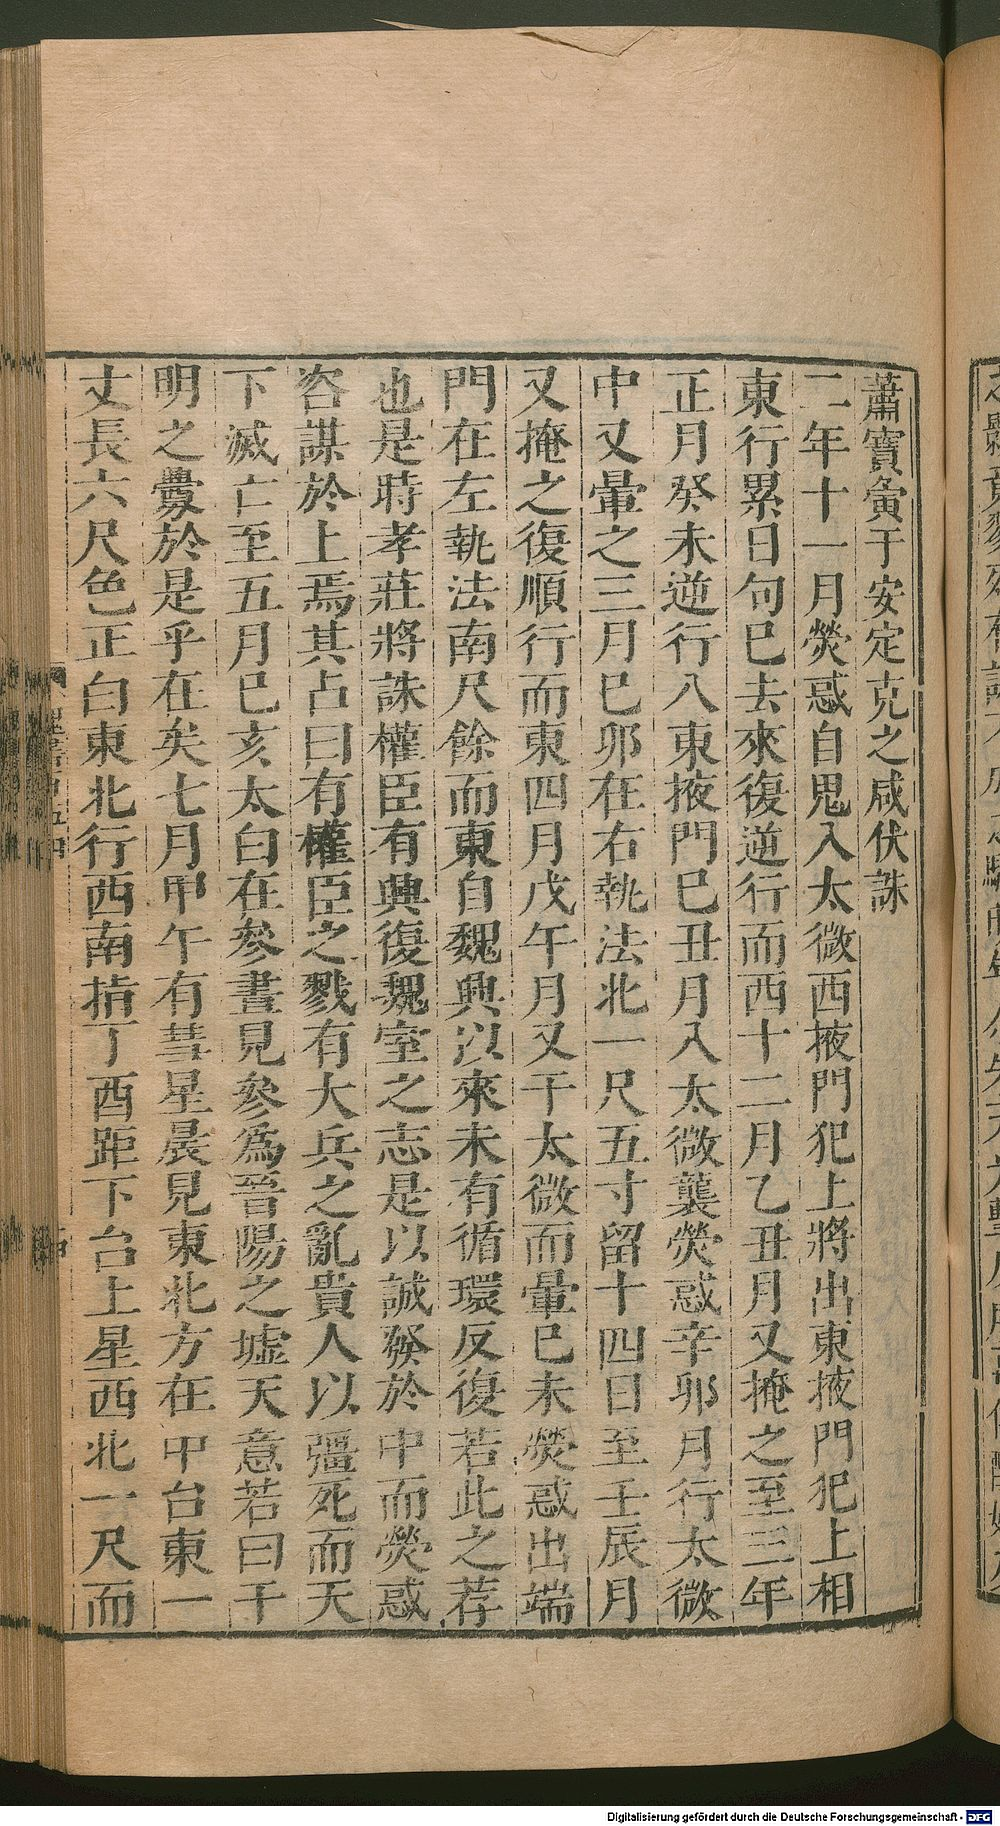 蕭寶夤于安定克之咸伏誅
二年十一月熒惑自鬼入太微西掖門犯上將出東掖門犯上相
東行累日句巳去來復逆行而西十二月乙丑月又掩之至三年
正月癸未逆行八東掖門巳丑月入太微襲熒惑辛卯月行太微
中又暈之三月巳卯在右執法北一尺五寸留十四日至壬辰月
又掩之復順行而東四月戊午月又干太微而暈巳未熒惑出端
門在左執法南尺餘而東自魏興以來未有循環反復若此之荐
也是時孝莊將誅權臣有興復魏室之志是以誠發於中而熒惑
咨謀於上焉其占曰有權臣之戮有大兵之亂貴人以彊死而天
下滅亡至五月巳亥太白在參晝見參爲晉陽之墟天意若曰干
明之釁於是乎在矣七月甲午有彗星晨見東北方在中台東一
丈長六尺色正白東北行西南指丁酉距下台上星西北一尺而
Digitalisierung gefördert durch die Deutsche Forschungsgemeinschaft - DFG